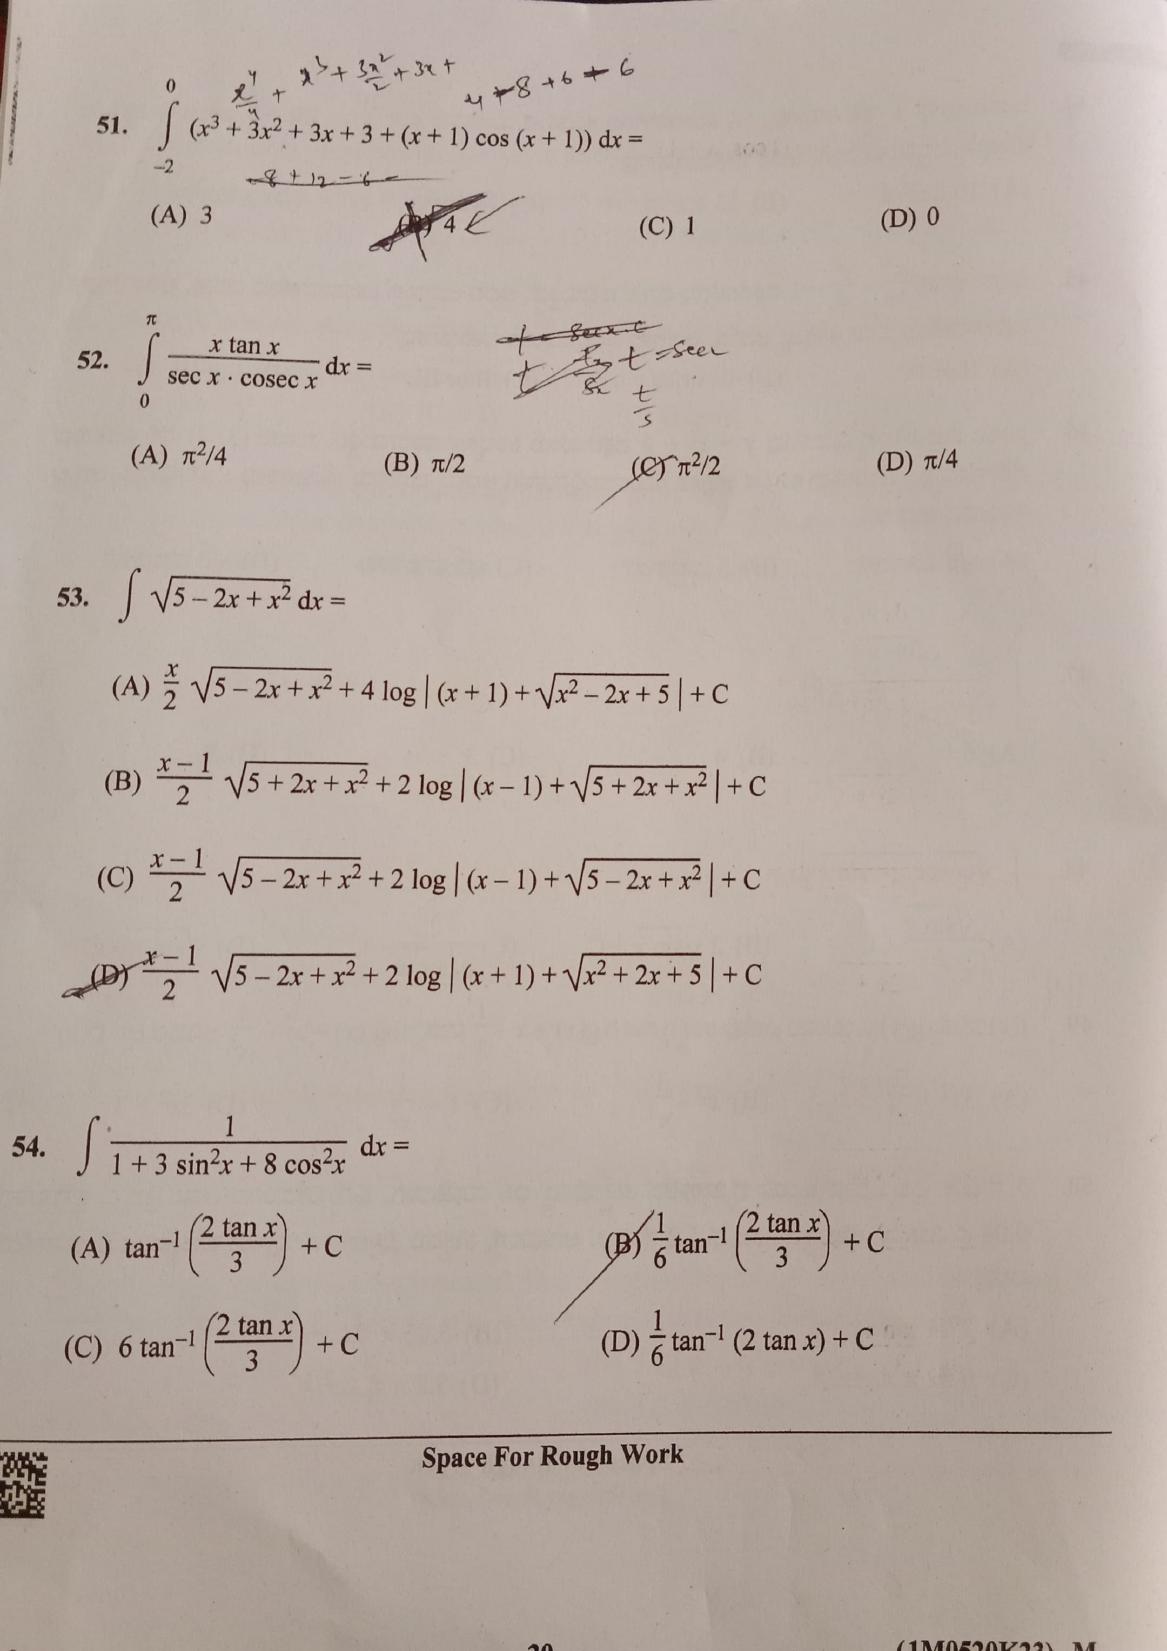 x⁴/4 + x³ + 3x²/2 + 3x +
4 + 8 + 6 + 6
51. ∫₋₂⁰ (x³ + 3x² + 3x + 3 + (x + 1) cos (x + 1)) dx =
-8 + 12 - 6 -
(A) 3 (B) 4 (C) 1 (D) 0
52. ∫₀^π (x tan x)/(sec x · cosec x) dx =
t = sec x
(A) π²/4 (B) π/2 (C) π²/2 (D) π/4
53. ∫ √(5 – 2x + x²) dx =
(A) x/2 √(5 – 2x + x²) + 4 log | (x + 1) + √(x² – 2x + 5) | + C
(B) (x – 1)/2 √(5 + 2x + x²) + 2 log | (x – 1) + √(5 + 2x + x²) | + C
(C) (x – 1)/2 √(5 – 2x + x²) + 2 log | (x – 1) + √(5 – 2x + x²) | + C
(D) (x – 1)/2 √(5 – 2x + x²) + 2 log | (x + 1) + √(x² + 2x + 5) | + C
54. ∫ 1/(1 + 3 sin²x + 8 cos²x) dx =
(A) tan⁻¹ (2 tan x/3) + C (B) 1/6 tan⁻¹ (2 tan x/3) + C
(C) 6 tan⁻¹ (2 tan x/3) + C (D) 1/6 tan⁻¹ (2 tan x) + C
Space For Rough Work